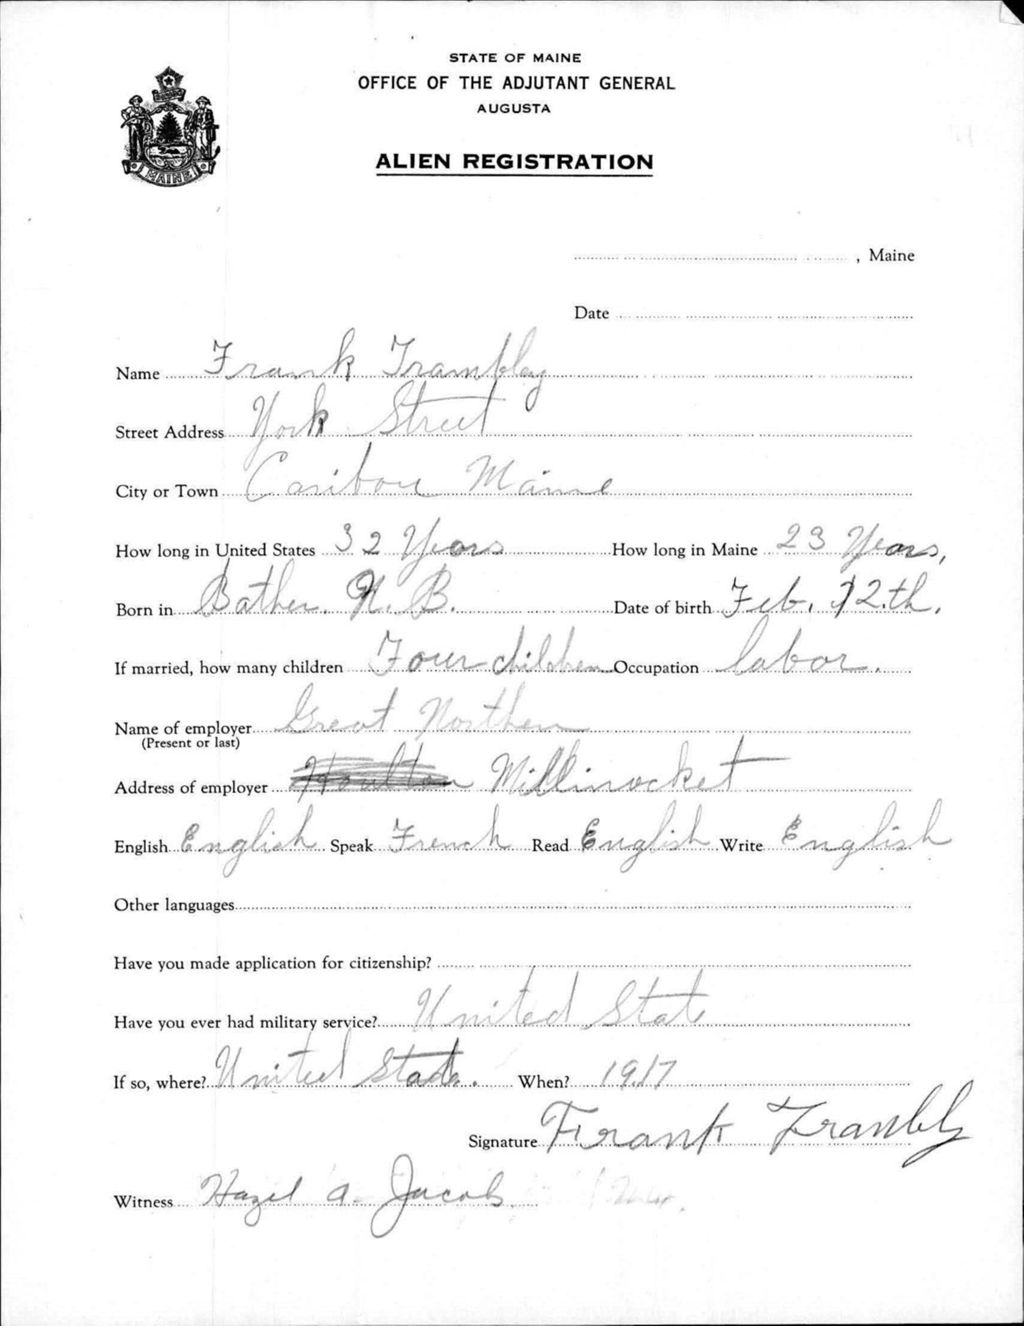 STATE OF MAINE
OFFICE OF THE ADJUTANT GENERAL
AUGUSTA
MAINE
ALIEN REGISTRATION
, Maine
Date
Name Frank Trambley
Street Address York Street
City or Town Caribou Maine
How long in United States 32 Years How long in Maine 23 Years,
Born in Bather. N. B. Date of birth Feb. 12.th.
If married, how many children Four children Occupation labor.
Name of employer Great Northen
(Present or last)
Address of employer Houlton Millinocket
English English Speak French Read English Write English
Other languages
Have you made application for citizenship?
Have you ever had military service? United State
If so, where? United State. When? 1917
Signature Frank Trambly
Witness Hazel a. Jacobs